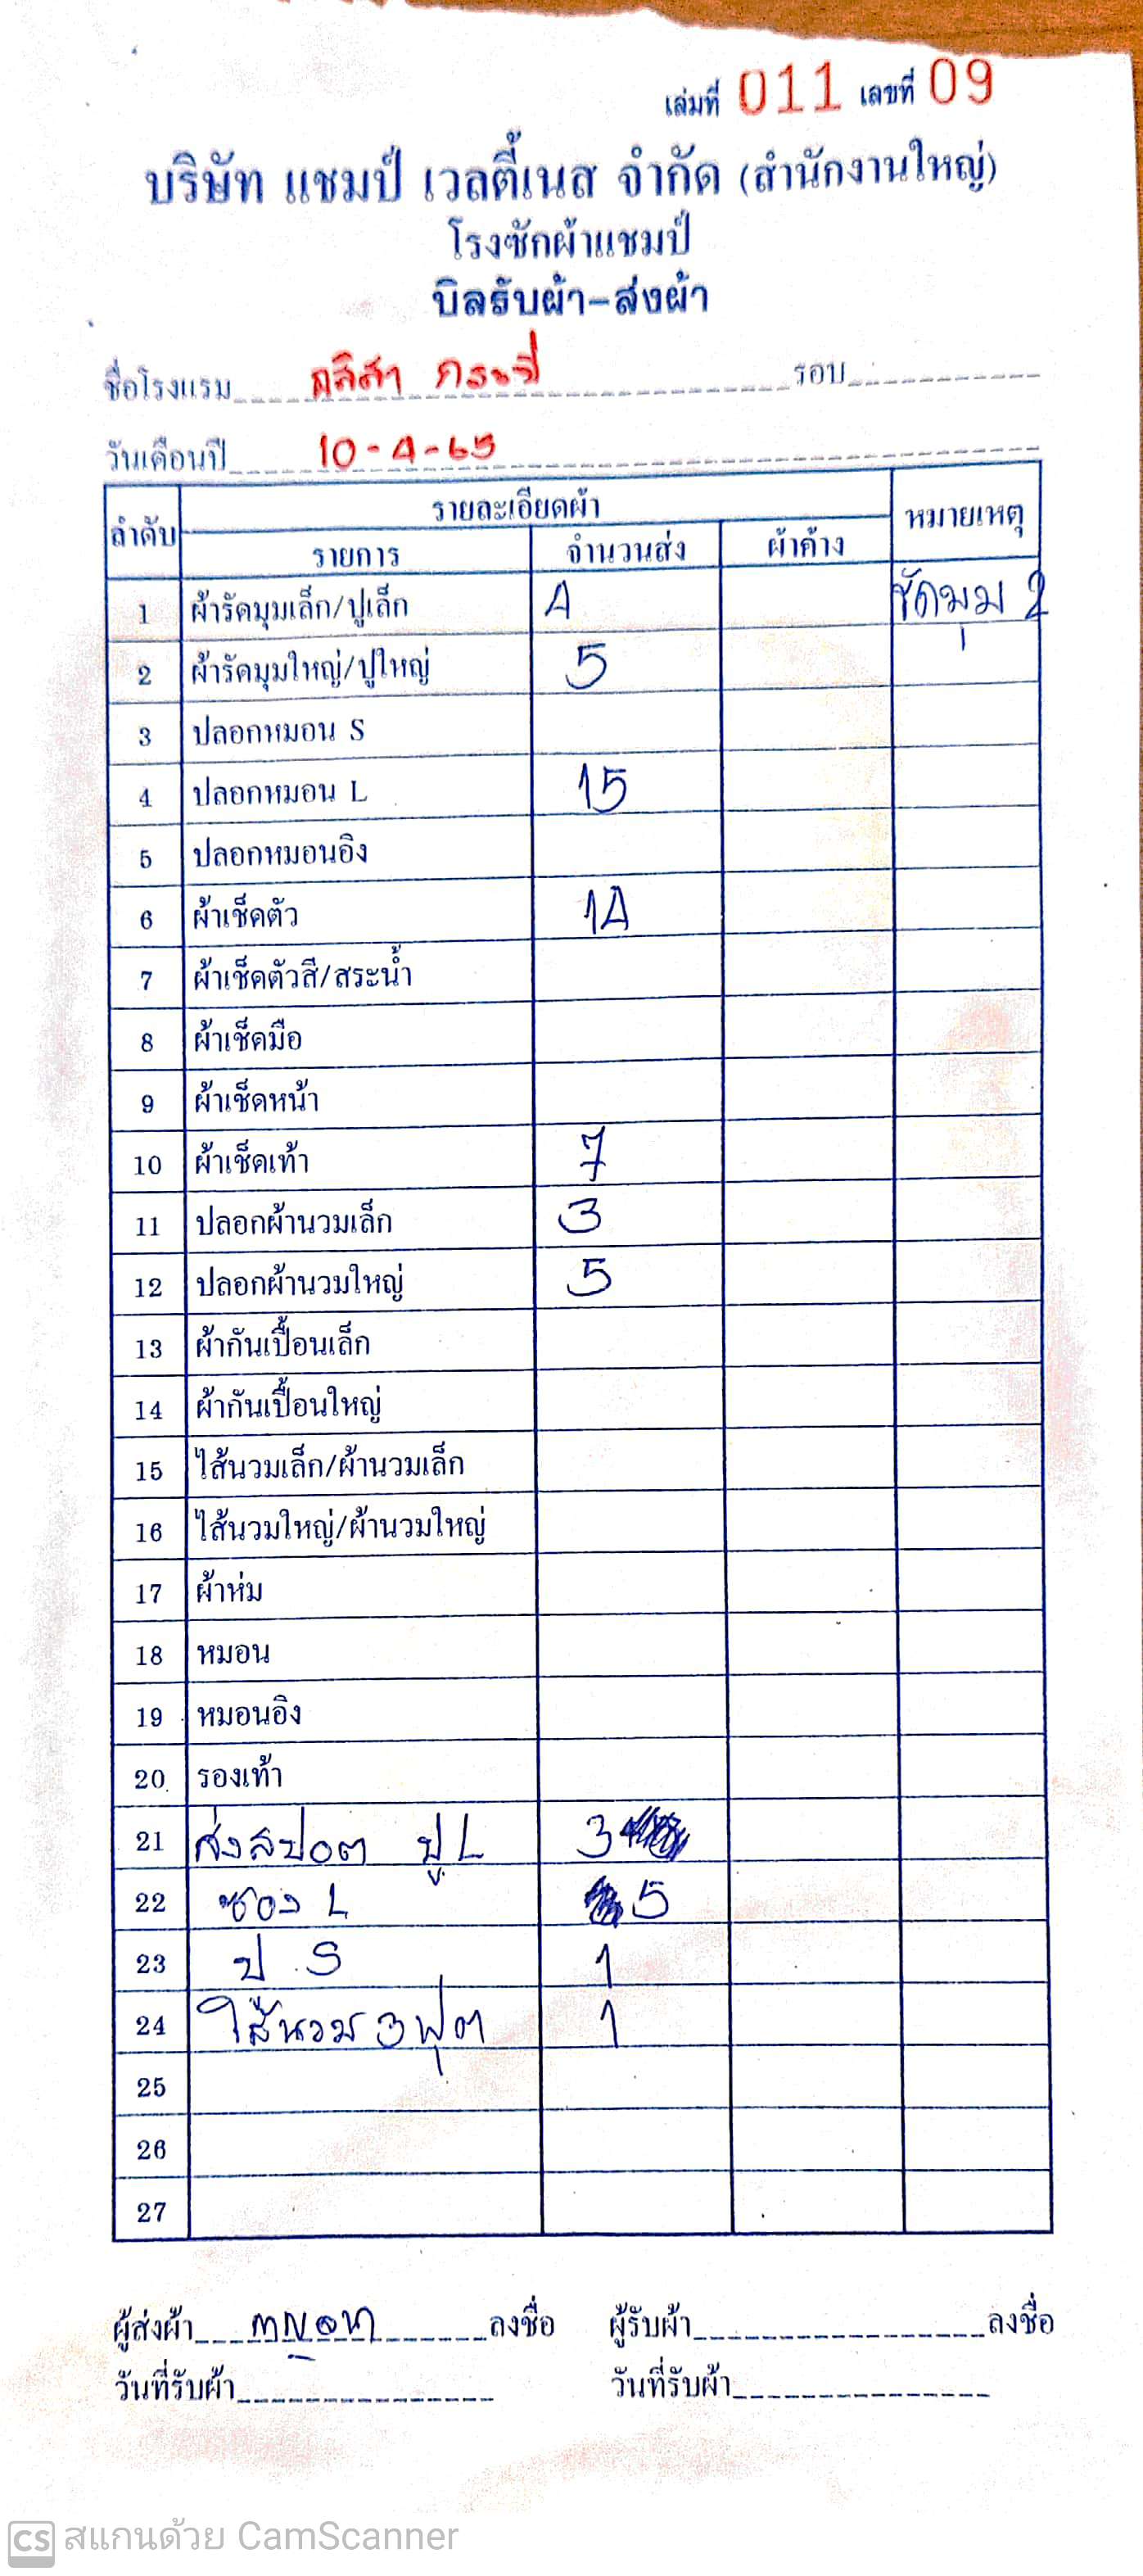 เล่มที่ 011 เลขที่ 09
บริษัท แชมป์ เวลตี้เนส จำกัด (สำนักงานใหญ่)
โรงซักผ้าแชมป์
บิลรับผ้า-ส่งผ้า
ชื่อโรงแรม ภลิสา กระบี่ รอบ
วันเดือนปี 10-4-65
ลำดับ รายละเอียดผ้า หมายเหตุ
รายการ จำนวนส่ง ผ้าค้าง
1 ผ้ารัดมุมเล็ก/ปูเล็ก 4 รัดมุม 2
2 ผ้ารัดมุมใหญ่/ปูใหญ่ 5
3 ปลอกหมอน S
4 ปลอกหมอน L 15
5 ปลอกหมอนอิง
6 ผ้าเช็ดตัว 14
7 ผ้าเช็ดตัวสี/สระน้ำ
8 ผ้าเช็ดมือ
9 ผ้าเช็ดหน้า
10 ผ้าเช็ดเท้า 7
11 ปลอกผ้านวมเล็ก 3
12 ปลอกผ้านวมใหญ่ 5
13 ผ้ากันเปื้อนเล็ก
14 ผ้ากันเปื้อนใหญ่
15 ไส้นวมเล็ก/ผ้านวมเล็ก
16 ไส้นวมใหญ่/ผ้านวมใหญ่
17 ผ้าห่ม
18 หมอน
19 หมอนอิง
20 รองเท้า
21 ส่งสปอต ปู L 3
22 ซอง L 5
23 ป S 1
24 ใส้นวม 3 ฟุต 1
25
26
27
ผู้ส่งผ้า ลงชื่อ ผู้รับผ้า ลงชื่อ
วันที่รับผ้า วันที่รับผ้า
CS สแกนด้วย CamScanner